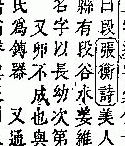 曰段張衡詩美人
聯有段谷水姜維
名字以長幼次第
又卵不成也與
氏為鑄器 又通